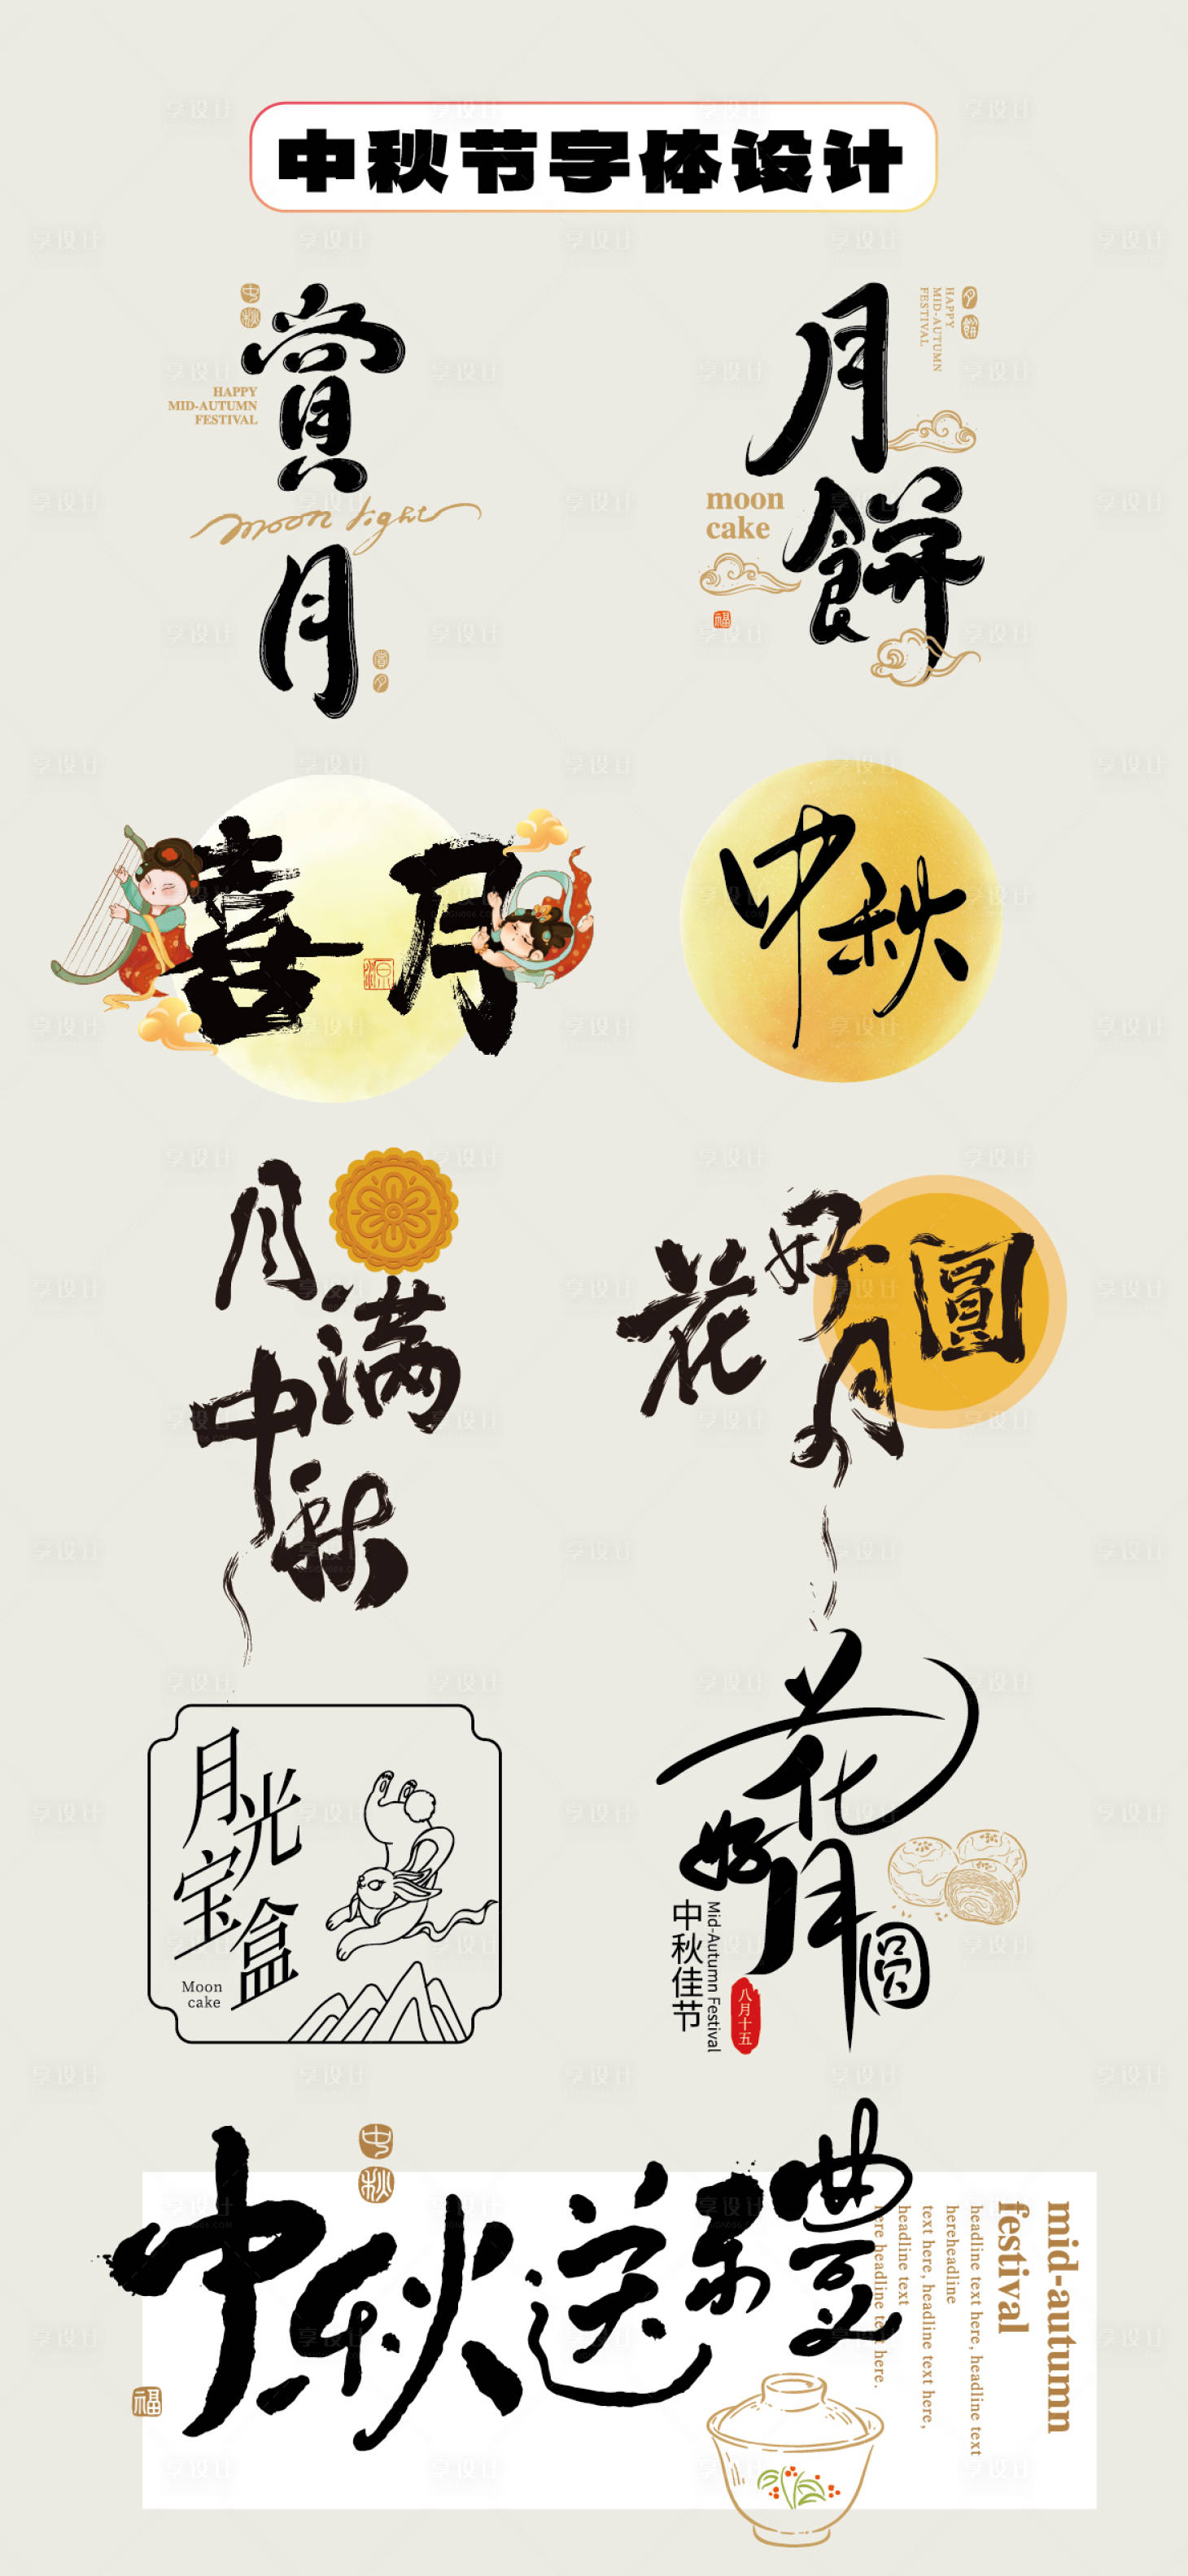 中秋节字体设计
中秋
賞月
HAPPY
MID-AUTUMN
FESTIVAL
moon light
賞月
月餅
HAPPY
MID-AUTUMN
FESTIVAL
月餅
moon
cake
福
喜月
中秋
月满中秋
花好月圓
月光宝盒
Moon
cake
花好月圆
中秋佳节
Mid-Autumn Festival
八月十五
中秋
中秋送禮
福
mid-autumn
festival
headline text here, headline text
hereheadline
text here, headline text here,
headline text
here headline text here.
享设计